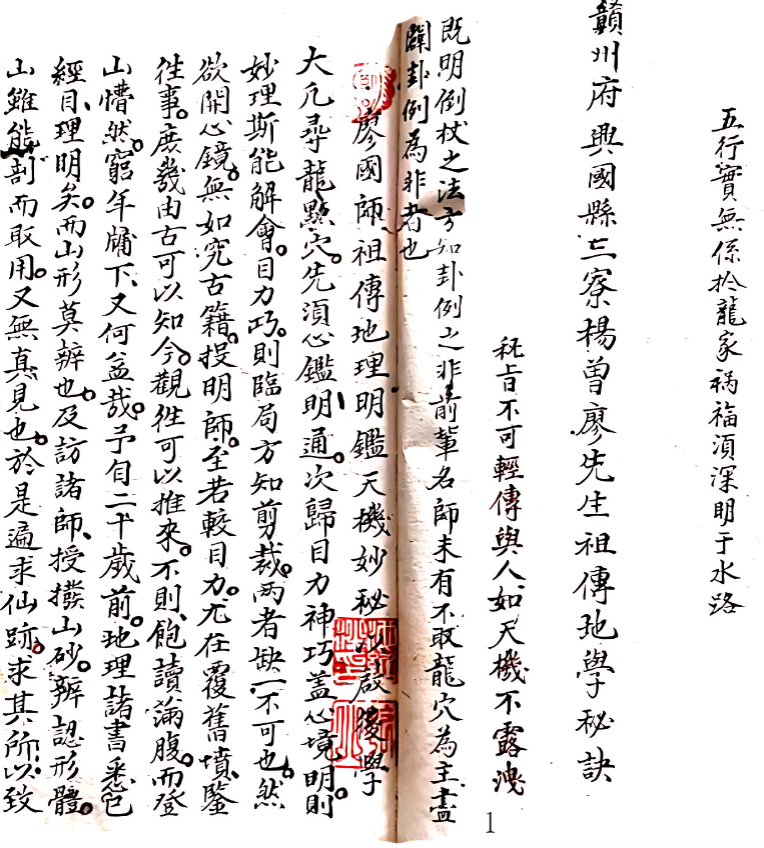 五行實無係於龍家禍福須深明于水路
贛州府興國縣三寮楊曾廖先生祖傳地學秘訣
秘旨不可輕傳與人如天機不露洩
既明倒杖之法方知卦例之非前輩名師未有不取龍穴為主盡
闢卦例為非者也
廖國師祖傳地理明鑑天機妙秘 啟後學
大凡尋龍點穴。先須心鑑明通。次歸目力神巧盖心境明。則
妙理斯能解會。目力巧。則臨局方知剪裁。两者缺一不可也。然
欲開心鏡。無如究古籍。投明師。至若較目力。尤在覆舊墳、鑒
徃事。庶幾由古可以知今。觀徃可以推來。不則、飽讀滿腹。而登
山懵然。窮年牖下、又何益哉。予自二十歲前。地理諸書悉包
經目、理明矣。而山形莫辨也。及訪諸師、授撥山砂。辨認形體。
山雖能剖而取用。又無真見也。於是遍求仙跡。求其所以致
1